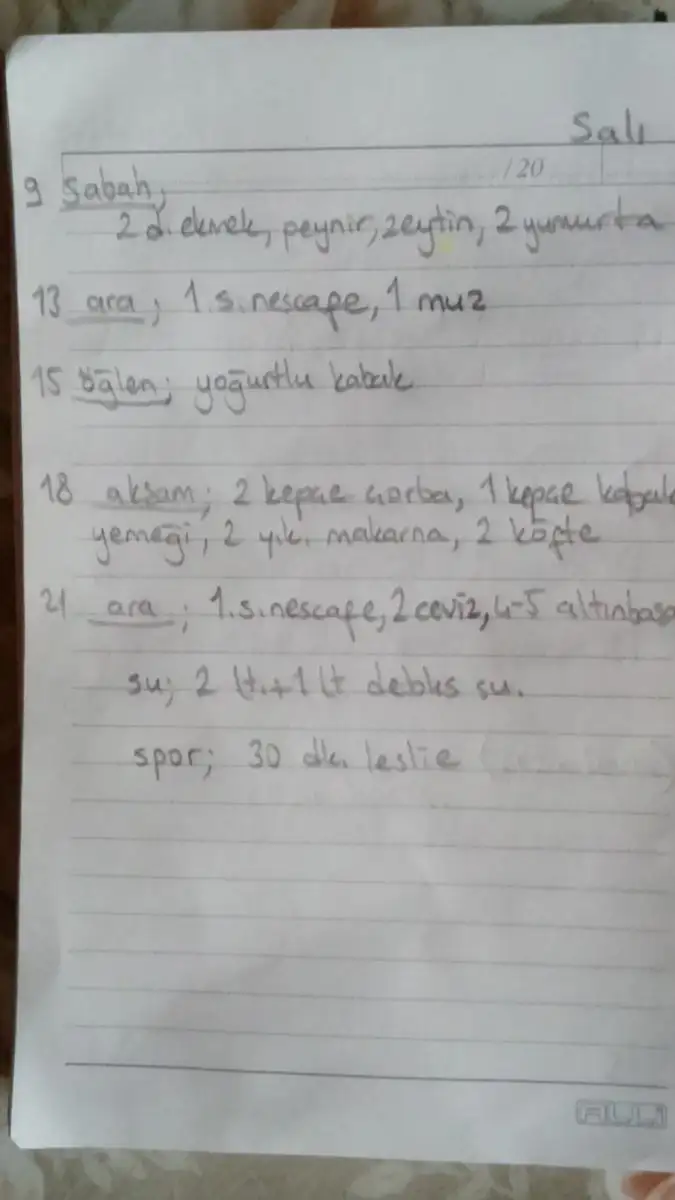 Salı
/20
9 Sabah;
2 d. ekmek, peynir, zeytin, 2 yumurta
13 ara; 1.s.nescafe, 1 muz
15 öğlen; yoğurtlu kabak
18 akşam; 2 kepçe çorba, 1 kepçe kabak
yemeği, 2 y.k. makarna, 2 köfte
21 ara; 1.s.nescafe, 2 ceviz, 4-5 altınbaşa
su; 2 lt.+1 lt debks su.
spor; 30 dk. leslie